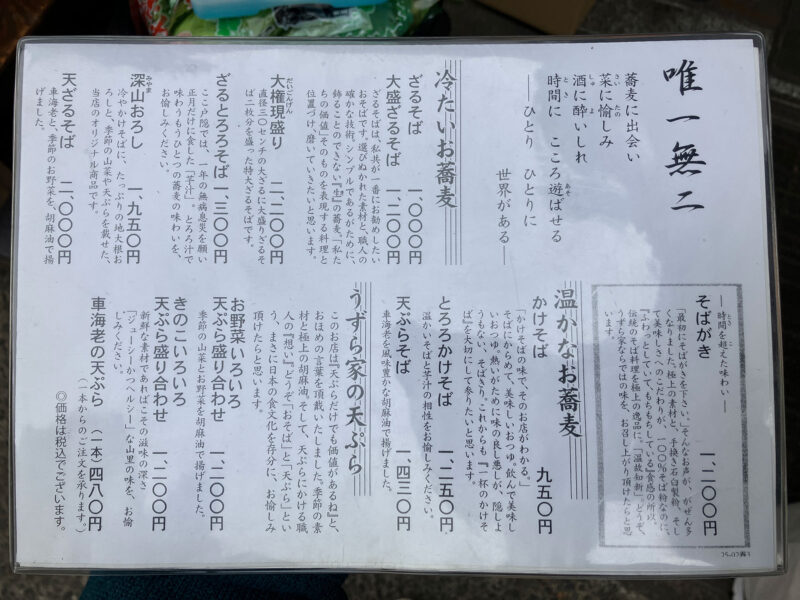 唯一無二
蕎麦に出会い
菜に愉しみ
酒に酔いしれ
時間に こころ遊ばせる
―ひとり ひとりに
世界がある―
冷たいお蕎麦
ざるそば 一、〇〇〇円
大盛ざるそば 一、四〇〇円
ざるそばは、私共が一番にお勧めしたい
おそばです。選びぬかれた素材と、職人の
確かな技術。シンプルであるがために、
飾ることのできない『生』の蕎麦。「私た
ちの価値」そのものを表現する料理と
位置づけ、磨いていきたいと思います。
大権現盛り 二、二〇〇円
直径三〇センチの大ざるに大盛りざるそ
ば二枚分を盛った特大ざるそばです。
ざるとろろそば 一、三〇〇円
ここ戸隠では、一年の無病息災を願い
正月だけに食した「芋汁」。とろろ汁で
味わうもうひとつの蕎麦の味わいを、
お愉しみください。
深山おろし 一、九五〇円
冷やかけそばに、たっぷりの地大根お
ろしと、季節の山菜や天ぷらを載せた、
当店のオリジナル商品です。
天ざるそば 二、〇〇〇円
車海老と、季節のお野菜を、胡麻油で揚
げました。
―時間を超えた味わい―
そばがき 一、二〇〇円
「最初にそばがきを下さい。」そんなお声が、がぜん多
くなりました。極上の素材と、手挽き石臼製粉、そし
て美味しさへのこだわりが、一〇〇%そば粉なのに、
「ふわっとしていて、もちもちしている」食感の所以。
伝統のそば料理を極上の逸品に。「温故知新」どうぞ、
うずら家ならではの味を、お召し上がり頂けたらと思
います。
温かなお蕎麦
かけそば 九五〇円
「かけそばの味で、そのお店がわかる。」
そばにからめて、美味しいおつゆ。飲んで美味し
いおつゆ。熱いがために味の良し悪しが、隠しよ
うもない、そばぎり。これからも『一杯のかけそ
ば』を大切にして参りたいと思います。
とろろかけそば 一、二五〇円
温かいそばと芋汁の相性をお愉しみください。
天ぷらそば 一、四三〇円
車海老を風味豊かな胡麻油で揚げました。
うずら家の天ぷら
このお店は『天ぷらだけでも価値があるね』と、
おほめの言葉を頂戴いたしました。季節の素
材と極上の胡麻油、そして、天ぷらにかける職
人の『想い』。どうぞ「おそば」と「天ぷら」とい
う、まさに日本の食文化を存分に、お愉しみ
頂けたらと思います。
お野菜いろいろ
天ぷら盛り合わせ 一、二〇〇円
季節の山菜とお野菜を胡麻油で揚げました。
きのこいろいろ
天ぷら盛り合わせ 一、二〇〇円
新鮮な素材であればこその滋味の深さ
「ジューシーかつヘルシー」な山里の味を、お愉
しみください。
車海老の天ぷら (一本)四八〇円
(一本からのご注文を承ります。)
◎価格は税込でございます。